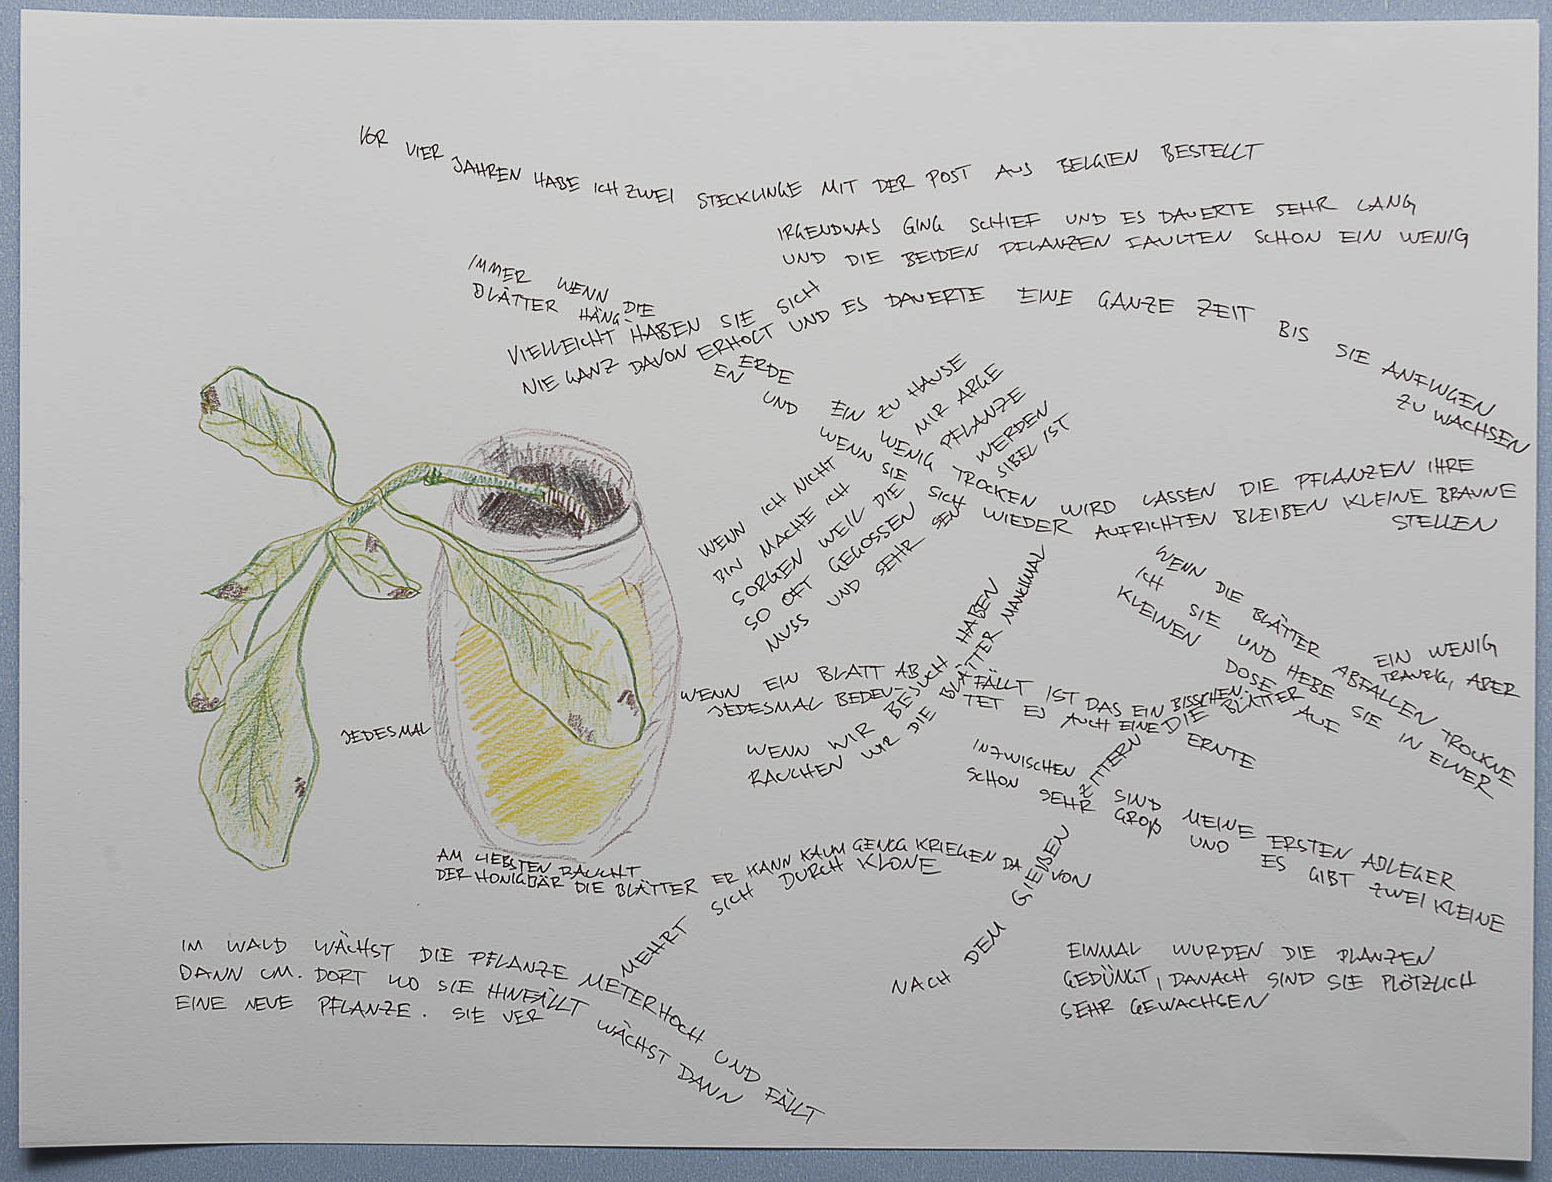 VOR VIER JAHREN HABE ICH ZWEI STECKLINGE MIT DER POST AUS BELGIEN BESTELLT
IRGENDWAS GING SCHIEF UND ES DAUERTE SEHR LANG
UND DIE BEIDEN PFLANZEN FAULTEN SCHON EIN WENIG
VIELLEICHT HABEN SIE SICH
NIE GANZ DAVON ERHOLT UND ES DAUERTE EINE GANZE ZEIT BIS SIE ANFINGEN
ZU WACHSEN
IMMER WENN DIE ERDE EIN WENIG TROCKEN WIRD LASSEN DIE PFLANZEN IHRE
BLÄTTER HÄNGEN UND WENN SIE SICH WIEDER AUFRICHTEN BLEIBEN KLEINE BRAUNE
STELLEN
WENN ICH NICHT ZU HAUSE
BIN MACHE ICH MIR ARGE
SORGEN WEIL DIE PFLANZE
SO OFT GEGOSSEN WERDEN
MUSS UND SEHR SENSIBEL IST
WENN DIE BLÄTTER ABFALLEN TROCKNE
ICH SIE UND HEBE SIE IN EINER
KLEINEN DOSE AUF
WENN EIN BLATT ABFÄLLT IST DAS EIN BISSCHEN EIN WENIG
TRAURIG, ABER
JEDESMAL
JEDESMAL BEDEUTET ES AUCH EINE ERNTE
WENN WIR BESUCH HABEN
RAUCHEN WIR DIE BLÄTTER MANCHMAL
INZWISCHEN SIND MEINE ERSTEN ABLEGER
SCHON SEHR GROẞ UND ES GIBT ZWEI KLEINE
NACH DEM GIEẞEN ZITTERN DIE BLÄTTER
AM LIEBSTEN RAUCHT
DER HONIGBÄR DIE BLÄTTER ER KANN KAUM GENUG KRIEGEN DAVON
IM WALD WÄCHST DIE PFLANZE METERHOCH UND FÄLLT
DANN UM. DORT WO SIE HINFÄLLT WÄCHST DANN
EINE NEUE PFLANZE. SIE VERMEHRT SICH DURCH KLONE
EINMAL WURDEN DIE PLANZEN
GEDÜNGT, DANACH SIND SIE PLÖTZLICH
SEHR GEWACHSEN